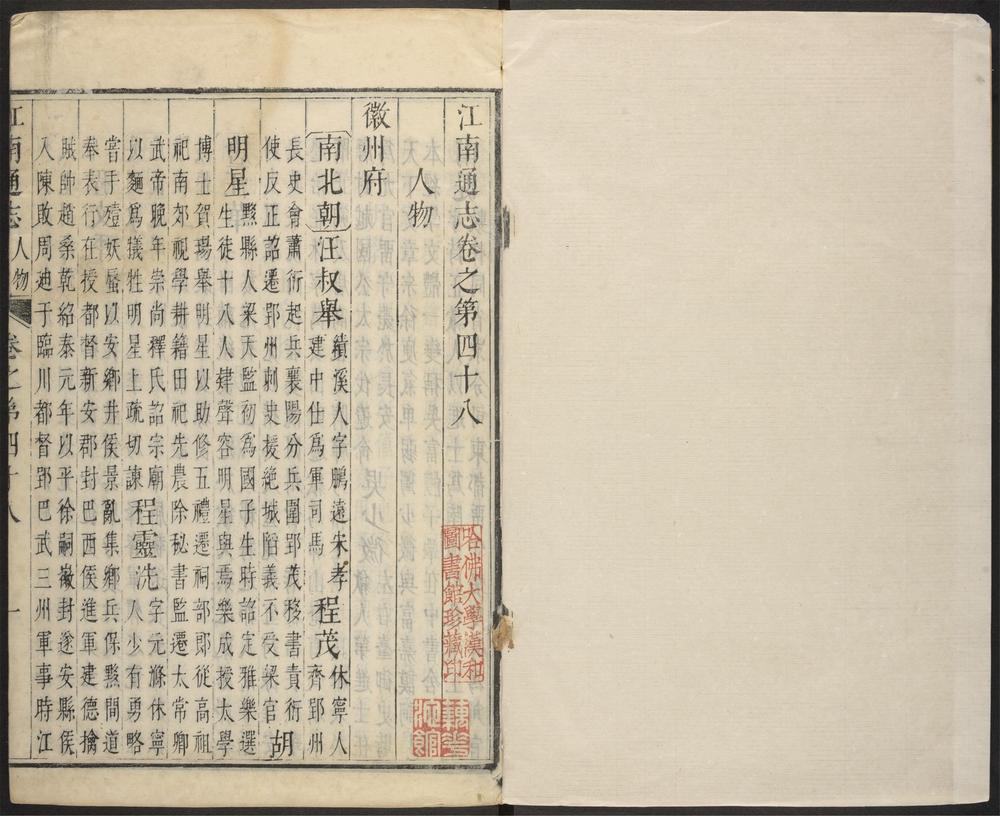 江南通志卷之第四十八
人物
徽州府
南北朝 汪叔舉 績溪人字鵬遠宋孝建中仕爲軍司馬 程茂 休寧人齊郢州
長史會蕭衍起兵襄陽分兵圍郢茂移書責衍
使反正詔遷郢州刺史援絕城陷義不受梁官 胡
明星 黟縣人梁天監初爲國子生時詔定雅樂選
生徒十八人肄聲容明星與焉樂成授太學
博士賀瑒舉明星以助修五禮遷祠部郎從高祖
祀南郊視學耕籍田祀先農除秘書監遷太常卿
武帝晚年崇尚釋氏詔宗廟
以麵爲犧牲明星上疏切諫 程靈洗 字元滌休寧
人少有勇略
嘗手殪妖蜃以安鄉井侯景亂集鄉兵保黟間道
奉表行在授都督新安郡封巴西侯進軍建德擒
賊帥趙桑乾紹泰元年以平徐嗣徽封遂安縣侯
入陳敗周迪于臨川都督郢巴武三州軍事時江
江南通志 人物 卷之第四十八 一
哈佛大學漢和
圖書館珍藏印